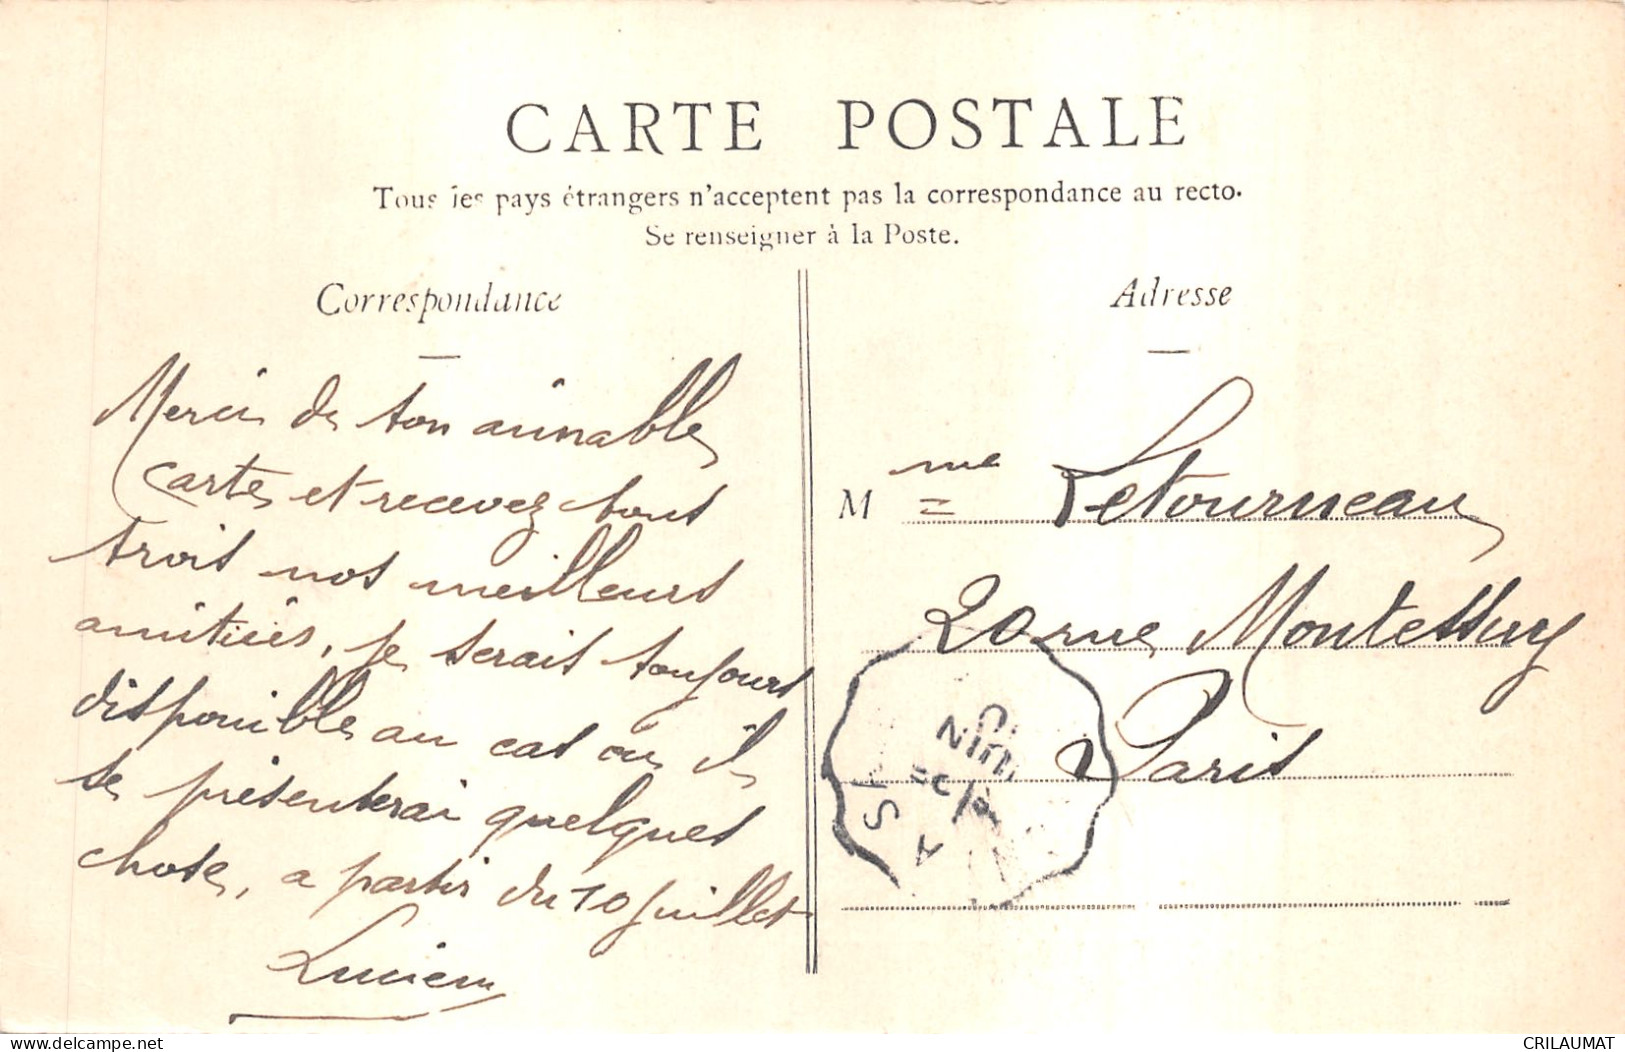 CARTE POSTALE
Tous les pays étrangers n'acceptent pas la correspondance au recto.
Se renseigner à la Poste.
Correspondance
Merci de ton aimable
carte, et recevez tous
trois nos meilleurs
amitiées, je serais toujours
disponible au cas ou il
se présenterai quelques
chose, a partir du 10 juillet
Lucien
Adresse
Mme Letourneau
20 rue Montessuy
Paris
JUIN
CRILAUMAT